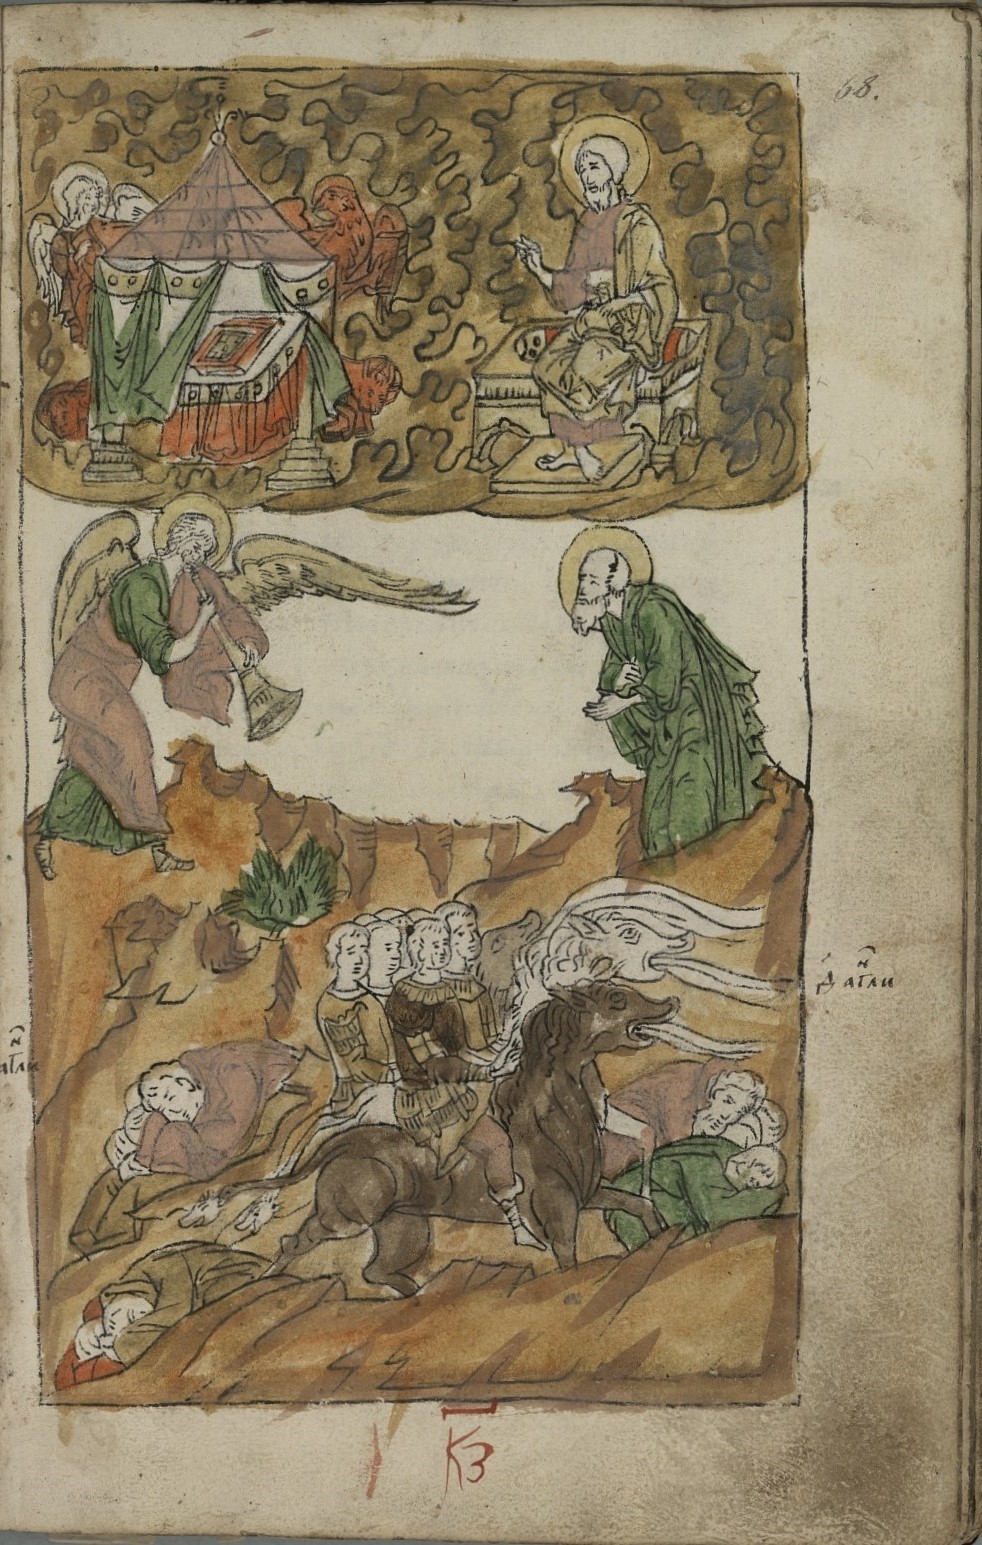 68.
д҃ агⷩ҇ли
агⷩ҇ли
К҃З